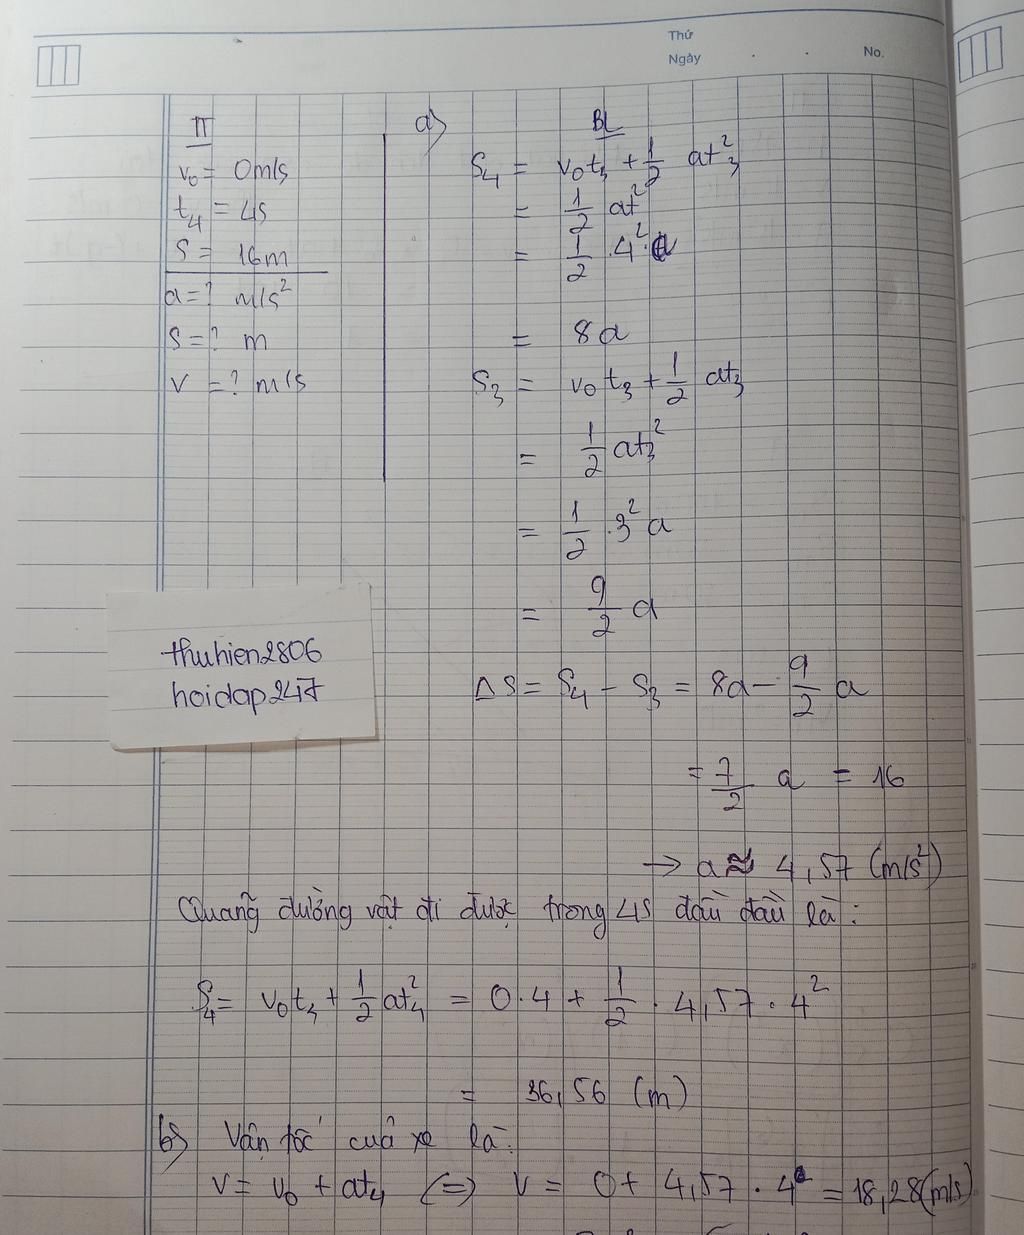 Thứ
Ngày . . No.
TT
v₀ = 0m/s
t₄ = 4s
S = 16m
a = ? m/s²
S = ? m
v = ? m/s
a)
BL
S₄ = v₀t₃ + 1/2 at₃²
= 1/2 at²
= 1/2 . 4² . a
= 8a
S₃ = v₀t₃ + 1/2 at₃
= 1/2 at₃²
= 1/2 . 3² a
= 9/2 a
thuhien2806
hoidap247
ΔS = S₄ - S₃ = 8a - 9/2 a
= 7/2 a = 16
→ a ≈ 4,57 (m/s²)
Quãng đường vật đi được trong 4s đầu đầu là:
S₄ = v₀t₃ + 1/2 at₄² = 0.4 + 1/2 . 4,57 . 4²
= 36,56 (m)
b) Vận tốc của xe là:
v = v₀ + at₄ (=) v = 0 + 4,57 . 4 = 18,28(m/s)